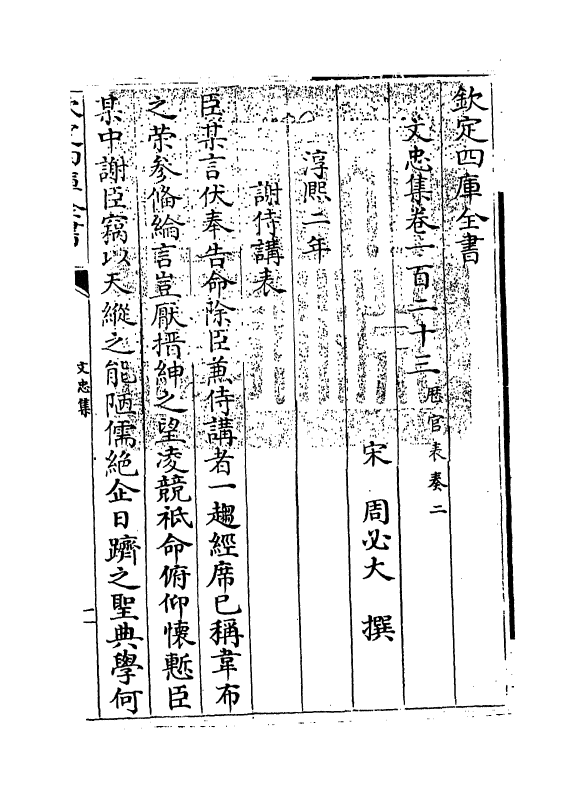 欽定四庫全書
文忠集卷一百二十三 歴官表奏二
宋 周必大 撰
淳熙二年
謝侍講表
臣某言伏奉告命除臣兼侍講者一趨經席已稱韋布
之荣參脩綸言豈厭搢紳之望凌競祇命俯仰懷慙臣
某中謝臣竊以天縱之能陋儒絶企日躋之聖典學何
欽定四庫全書
文忠集
一